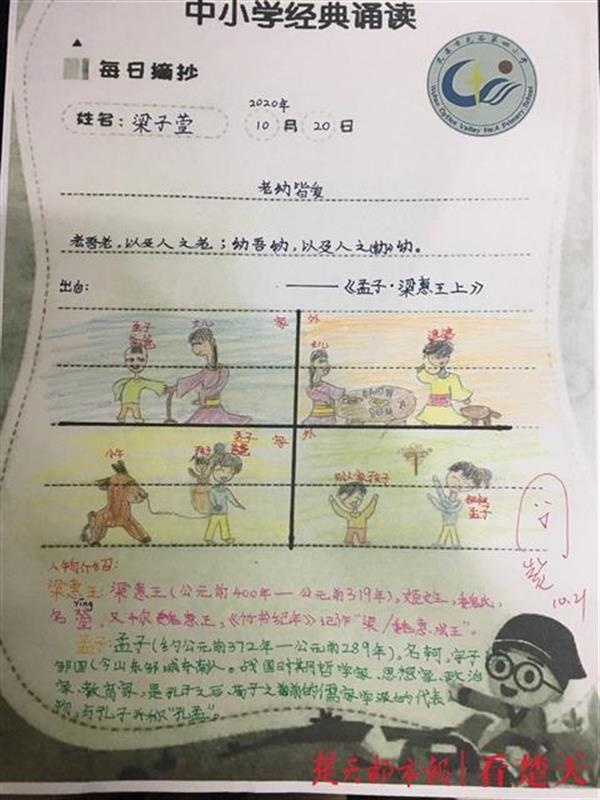 中小学经典诵读
每日摘抄
武汉市光谷第四小学
Wuhan Optics Valley No.4 Primary School
姓名：梁子萱
2020年
10月20日
老幼皆爱
老吾老，以及人之老；幼吾幼，以及人之幼。
出自：——《孟子·梁惠王上》
家 外
女儿
女儿
家 外
小牛
孩子
别人家孩子
孟子
10.21
人物介绍：
梁惠王：梁惠王（公元前400年—公元前319年），姬姓，魏氏，
yīng
名罃，又称魏惠王，《竹书纪年》记作“梁/魏惠成王”。
孟子：孟子（约公元前372年—公元前289年），名轲，字子
邹国（今山东邹城东南人。战国时期哲学家、思想家、政治
家、教育家，是孔子之后、荀子之前的儒家学派的代表人
物，与孔子并称“孔孟”。
楚天都市报 看楚天